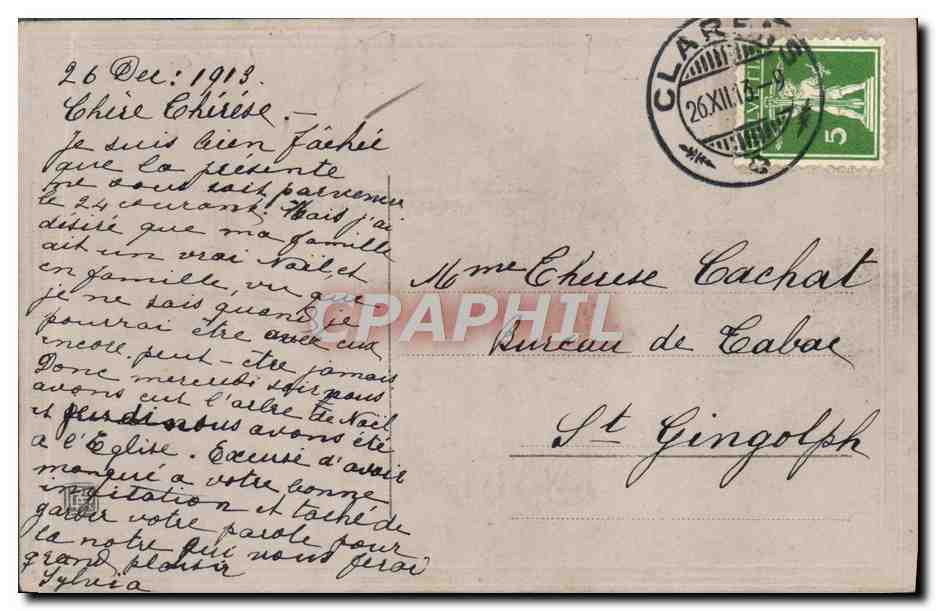 26 Dec: 1913.
Chère Thérése. —
Je suis bien fâchée
que la présente
ne vous soit parvenue
le 24 courant. Mais j'ai
désiré que ma famille
ait un vrai Noël, et
en famille, vu que
je ne sais quand je
pourrai être avec eux
encore, peut-être jamais
Donc mercredi soir nous
avons eut l'arbre de Noël
et jeudi nous avons été
a l'Eglise. Excusé d'avoir
manqué a votre bonne
invitation et taché de
garder votre parole pour
la notre qui nous ferai
grand plaisir
Sylvia
CLARENS
26.XII.13.–9
HELVETIA
5
Mme Therese Cachat
Bureau de Tabac
St Gingolph
CPAPHIL